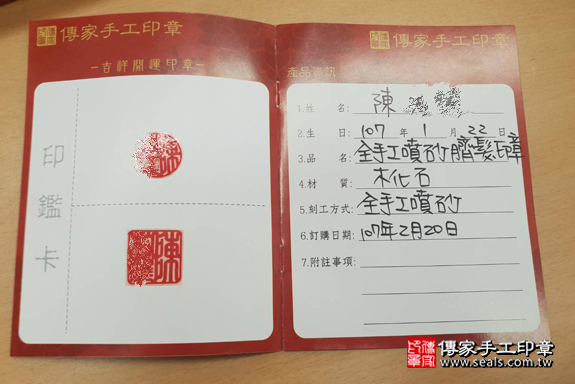 傳家手工印章
－吉祥開運印章－
印鑑卡
陳
陳
傳家手工印章
產品資訊
1.姓 名: 陳
2.生 日: 107 年 1 月 22 日
3.品 名: 全手工噴砂臍髮印章
4.材 質: 木化石
5.刻工方式: 全手工噴砂
6.訂購日期: 107年2月20日
7.附註事項:
傳家手工印章
www.seals.com.tw